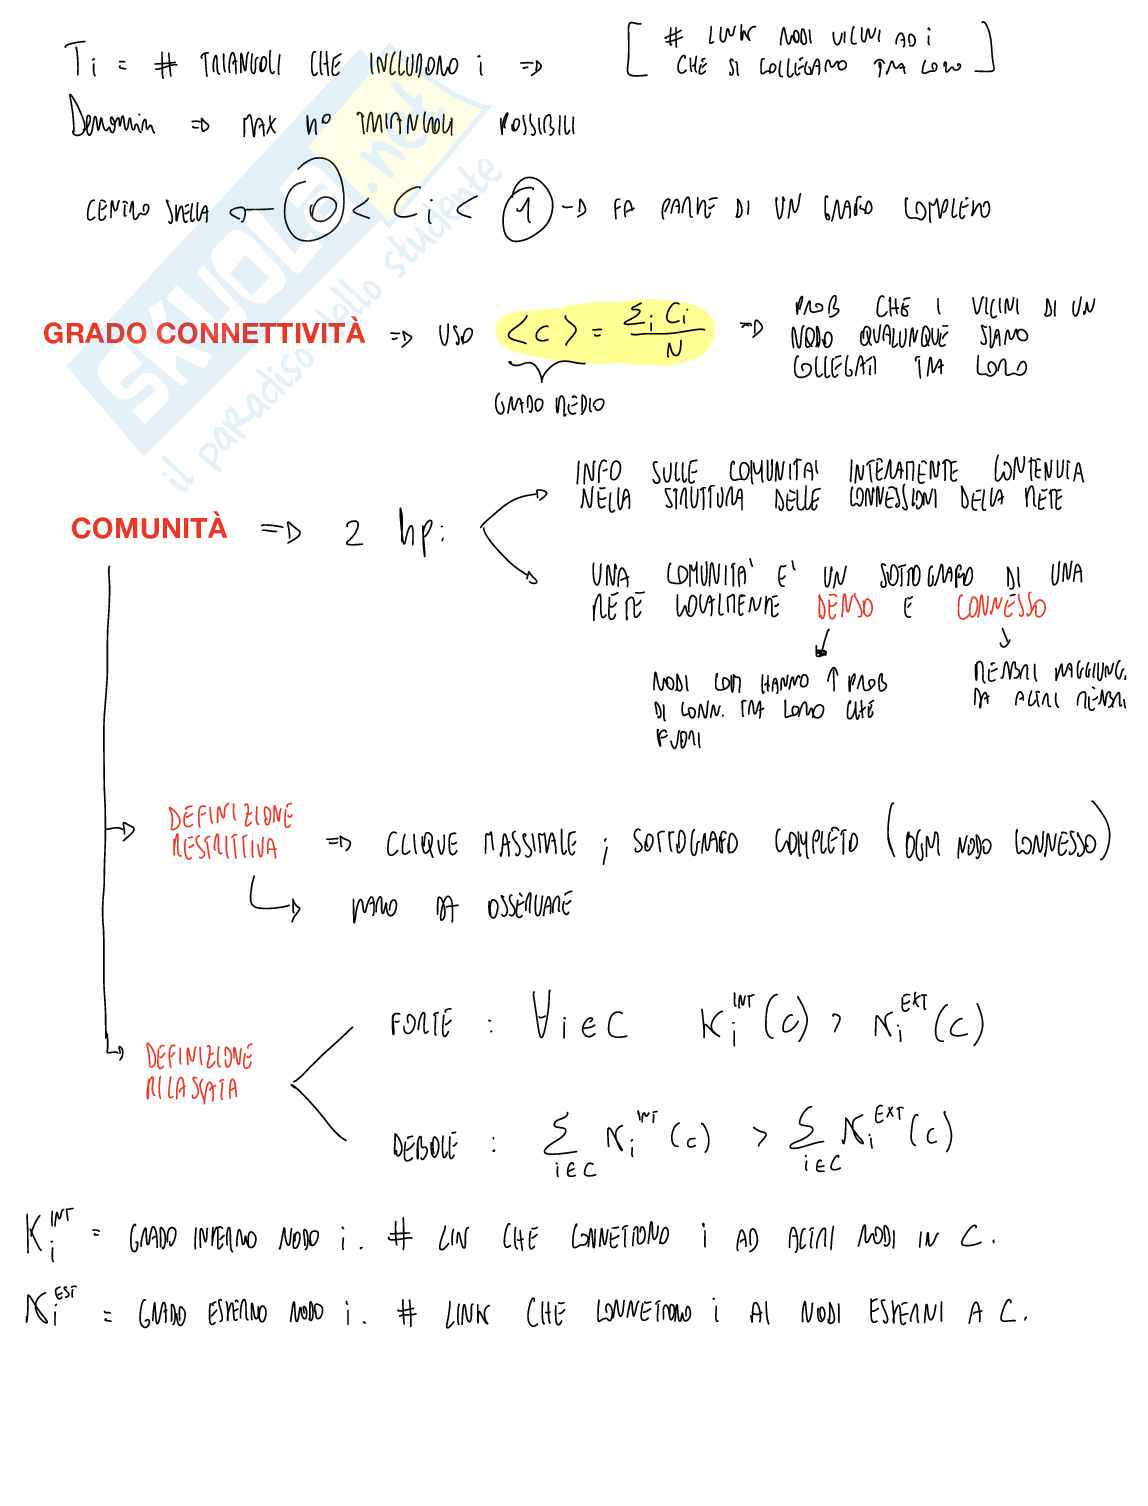 Ti = # TRIANGOLI CHE INCLUDONO i => [ # LINK NODI VICINI AD i
CHE SI COLLEGANO TRA LORO ]
Denomin => MAX n° TRIANGOLI POSSIBILI
CENTRO STELLA <- 0 < Ci < 1 -> FA PARTE DI UN GRAFO COMPLETO
GRADO CONNETTIVITÀ => USO <C> = Σi Ci / N => PROB CHE I VICINI DI UN
NODO QUALUNQUE SIANO
COLLEGATI TRA LORO
GRADO MEDIO
INFO SULLE COMUNITA' INTERAMENTE CONTENUTA
NELLA STRUTTURA DELLE CONNESSIONI DELLA RETE
COMUNITÀ => 2 hp:
UNA COMUNITA' E' UN SOTTOGRAFO DI UNA
RETE LOCALMENTE DENSO E CONNESSO
NODI COM HANNO ↑ PROB
DI CONN. TRA LORO CHE
FUORI
MEMBRI RAGGIUNG.
DA ALTRI MEMBRI
DEFINIZIONE
RESTRITTIVA => CLIQUE MASSIMALE ; SOTTOGRAFO COMPLETO (OGNI NODO CONNESSO)
-> RARO DA OSSERVARE
DEFINIZIONE
RILASSATA
FORTE : ∀ i ∈ C Ki^INT (C) > Ki^EXT (C)
DEBOLE : Σ i∈C Ki^INT (C) > Σ i∈C Ki^EXT (C)
Ki^INT = GRADO INTERNO NODO i. # LIN CHE CONNETTONO i AD ALTRI NODI IN C.
Ki^EST = GRADO ESTERNO NODO i. # LINK CHE CONNETTONO i AI NODI ESTERNI A C.
SKUOLA.net
il paradiso dello studente